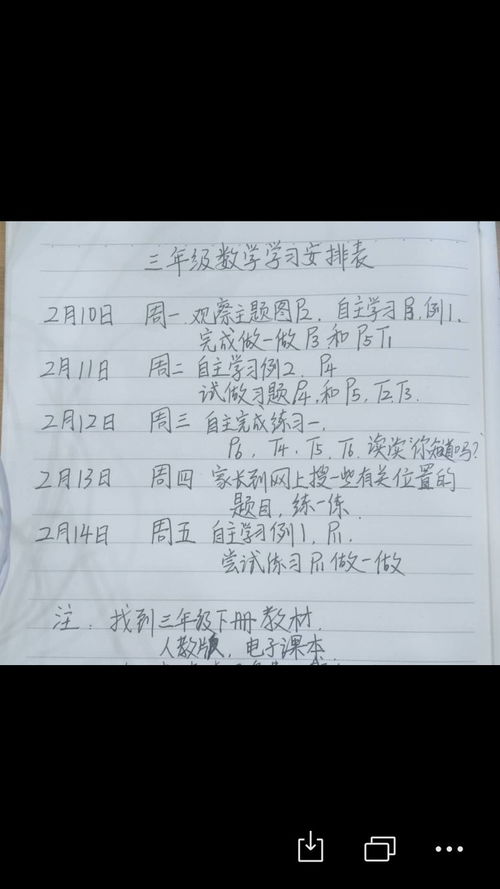 三年级数学学习安排表
2月10日 周一 观察主题图P2. 自主学习P3,例1.
完成做一做P3和P5T1
2月11日 周二 自主学习例2. P4
试做习题P4,和P5,T2T3.
2月12日 周三 自主完成练习一,
P6、T4、T5、T6. 读读“你知道吗?
2月13日 周四 家长到网上搜一些有关位置的
题目,练一练.
2月14日 周五 自主学习例1,P11.
尝试练习P11做一做
注:找到三年级下册教材.
人教版,电子课本